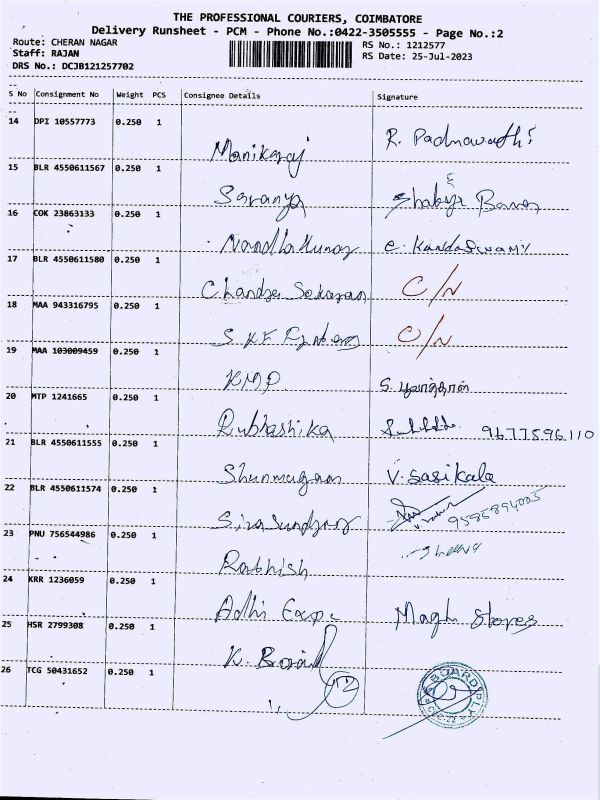 THE PROFESSIONAL COURIERS, COIMBATORE
Delivery Runsheet - PCM - Phone No.:0422-3505555 - Page No.:2
Route: CHERAN NAGAR
RS No.: 1212577
Staff: RAJAN
RS Date: 25-Jul-2023
DRS No.: DCJB121257702
S No Consignment No Weight PCS Consignee Details Signature
14 DPI 10557773 0.250 1
Manikaraj R. Padmavathi
15 BLR 4550611567 0.250 1
Saranya
16 COK 23863133 0.250 1
Nandhakumar e. Kandaswamy
17 BLR 4550611580 0.250 1
Chandra Sekaran C/N
18 MAA 943316795 0.250 1
S.K.F C/N
19 MAA 103009459 0.250 1
KMP
20 MTP 1241665 0.250 1
Rubhashika 9677596110
21 BLR 4550611555 0.250 1
Shunmugam V. Sasikala
22 BLR 4550611574 0.250 1
Sivasundar 9585894005
23 PNU 756544986 0.250 1
Rathish
24 KRR 1236059 0.250 1
Adhi Exp. Magh Stores
25 HSR 2799308 0.250 1
K.
26 TCG 50431652 0.250 1
12
BOARD